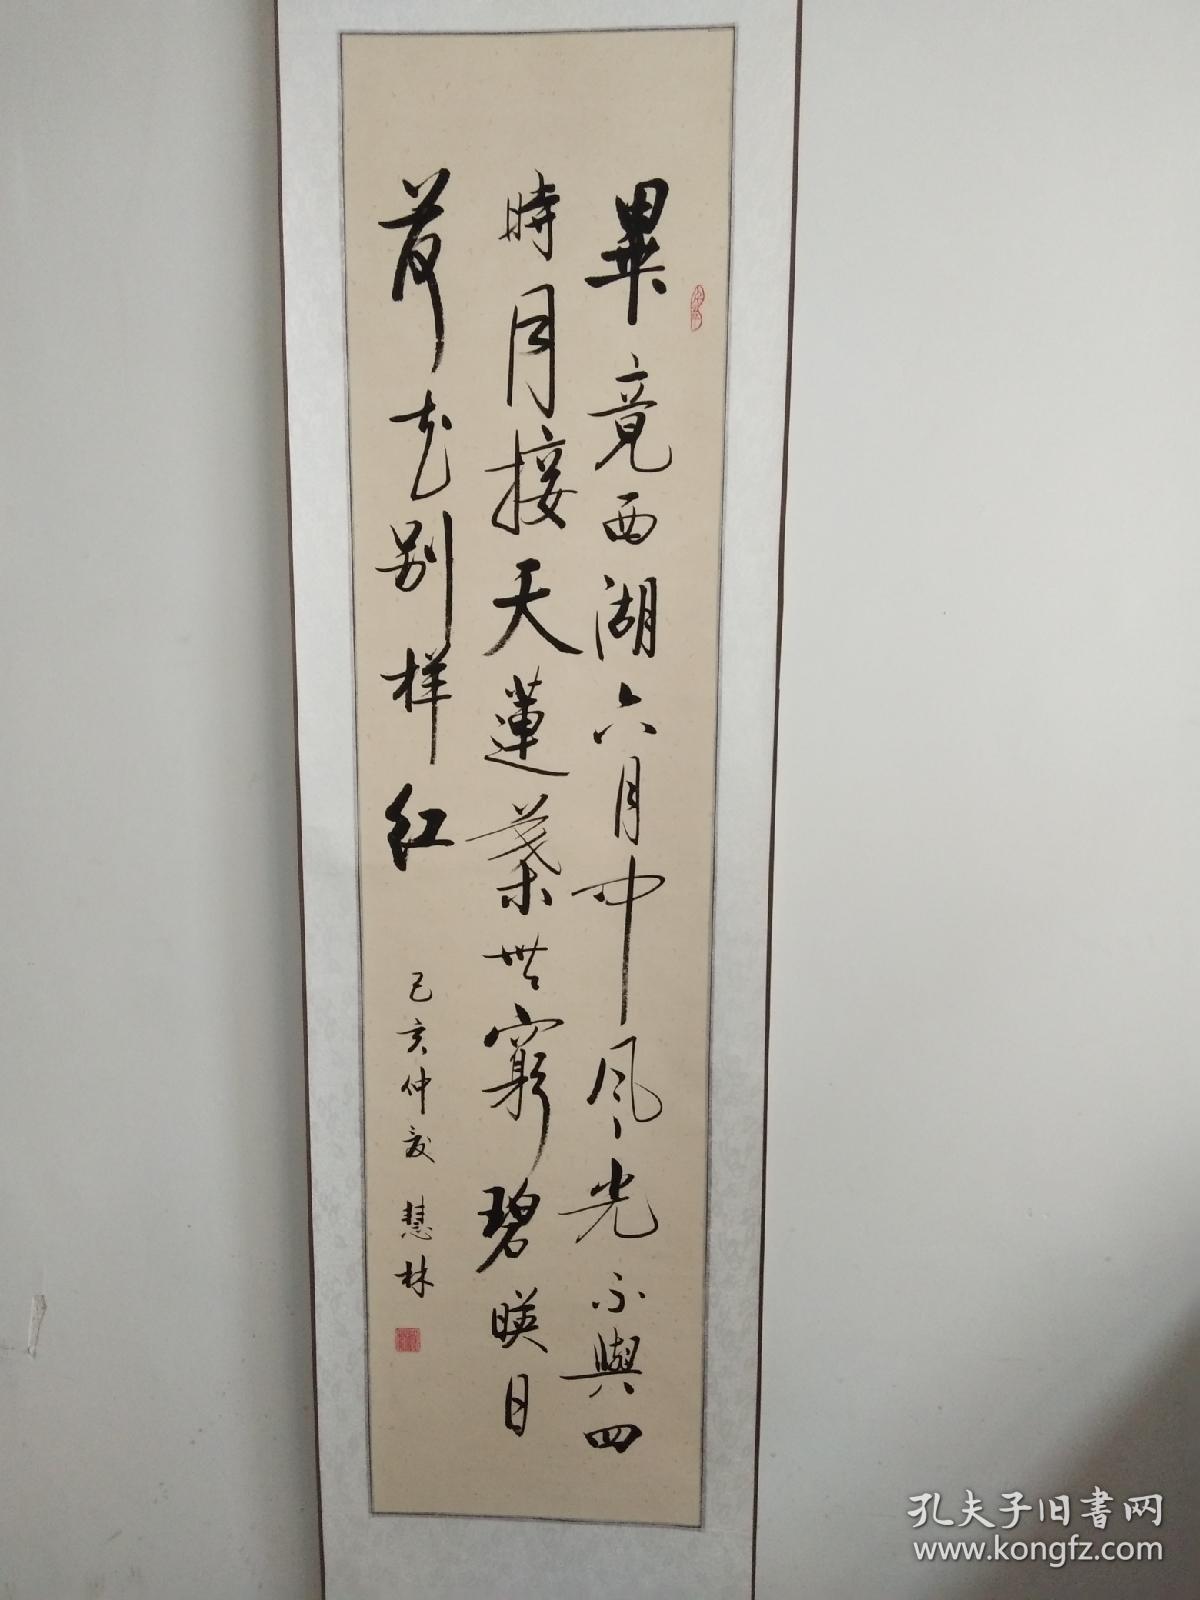 畢竟西湖六月中风光不與四
時同接天蓮葉無窮碧映日
荷花别样红
己亥仲夏 慧林
孔夫子旧書网
www.kongfz.com